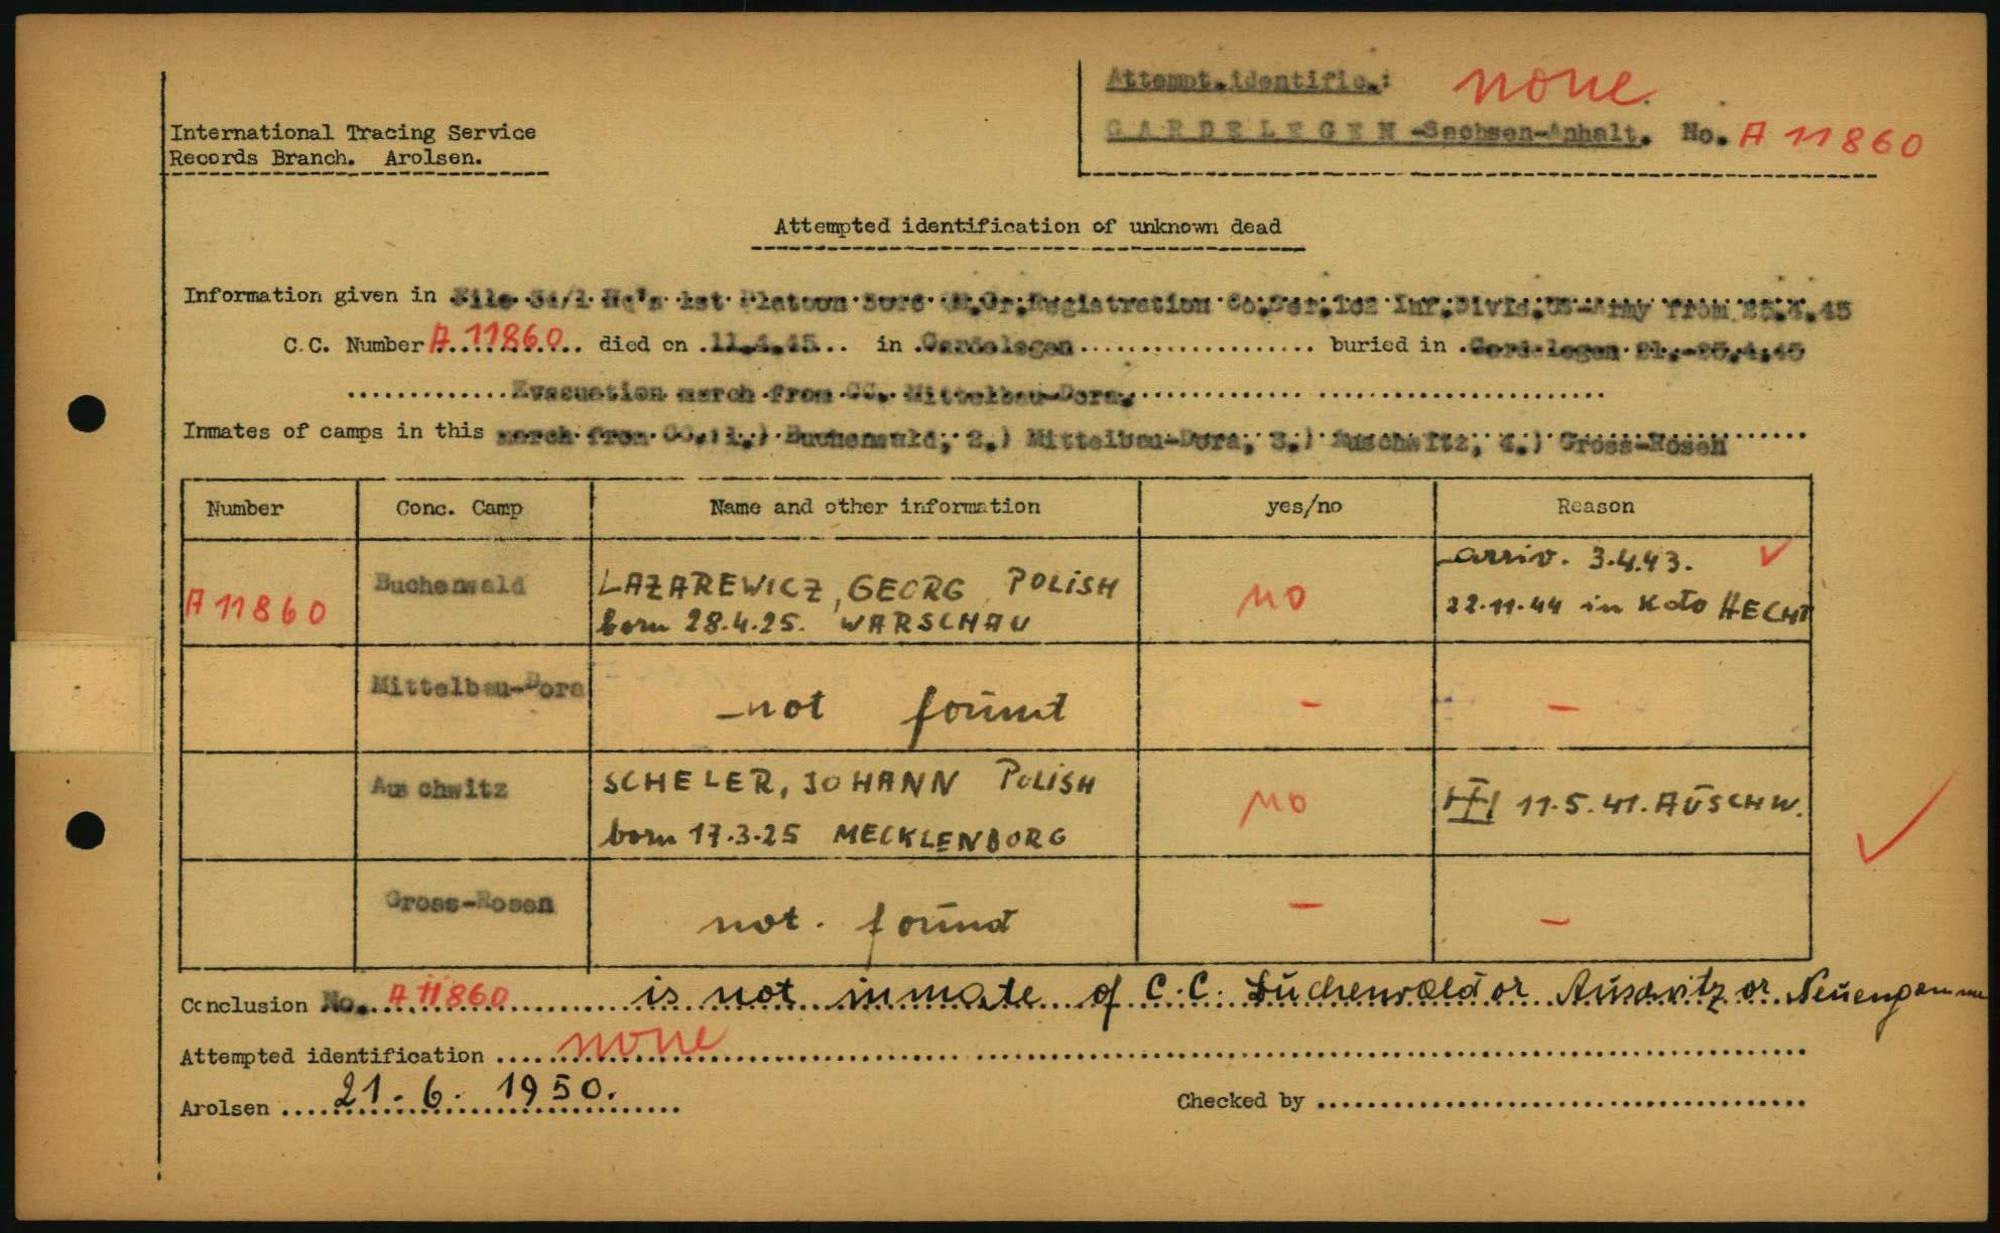 Attempt.identific.: none.
International Tracing Service
Records Branch. Arolsen.
GARDELEGEN-Sachsen-Anhalt. No. A 11860
Attempted identification of unknown dead
Information given in File 54/1 Hq's 1st Platoon Registration 102 Inf.Divis.US-Army from 25.4.45
C.C. Number A 11860 died on in Gardelegen buried in Gardelegen
Evacuation march from CC. Mittelbau-Dora.
Inmates of camps in this march from CC.: 1.) Buchenwald, 2.) Mittelbau-Dora, 3.) Auschwitz, 4.) Gross-Rosen
Number Conc. Camp Name and other information yes/no Reason
A 11860 Buchenwald LAZAREWICZ, GEORG POLISH no arriv. 3.4.43.
born 28.4.25. WARSCHAU 22.11.44 in Kdo HECHT
Mittelbau-Dora not found - -
Auschwitz SCHELER, JOHANN POLISH no 11.5.41. AUSCHW.
born 17.3.25 MECKLENBORG
Gross-Rosen not. found - -
Conclusion No. A 11860 is not inmate of C.C. Buchenwald or Auswitz or Neuengamme
Attempted identification none
Arolsen 21.6.1950. Checked by